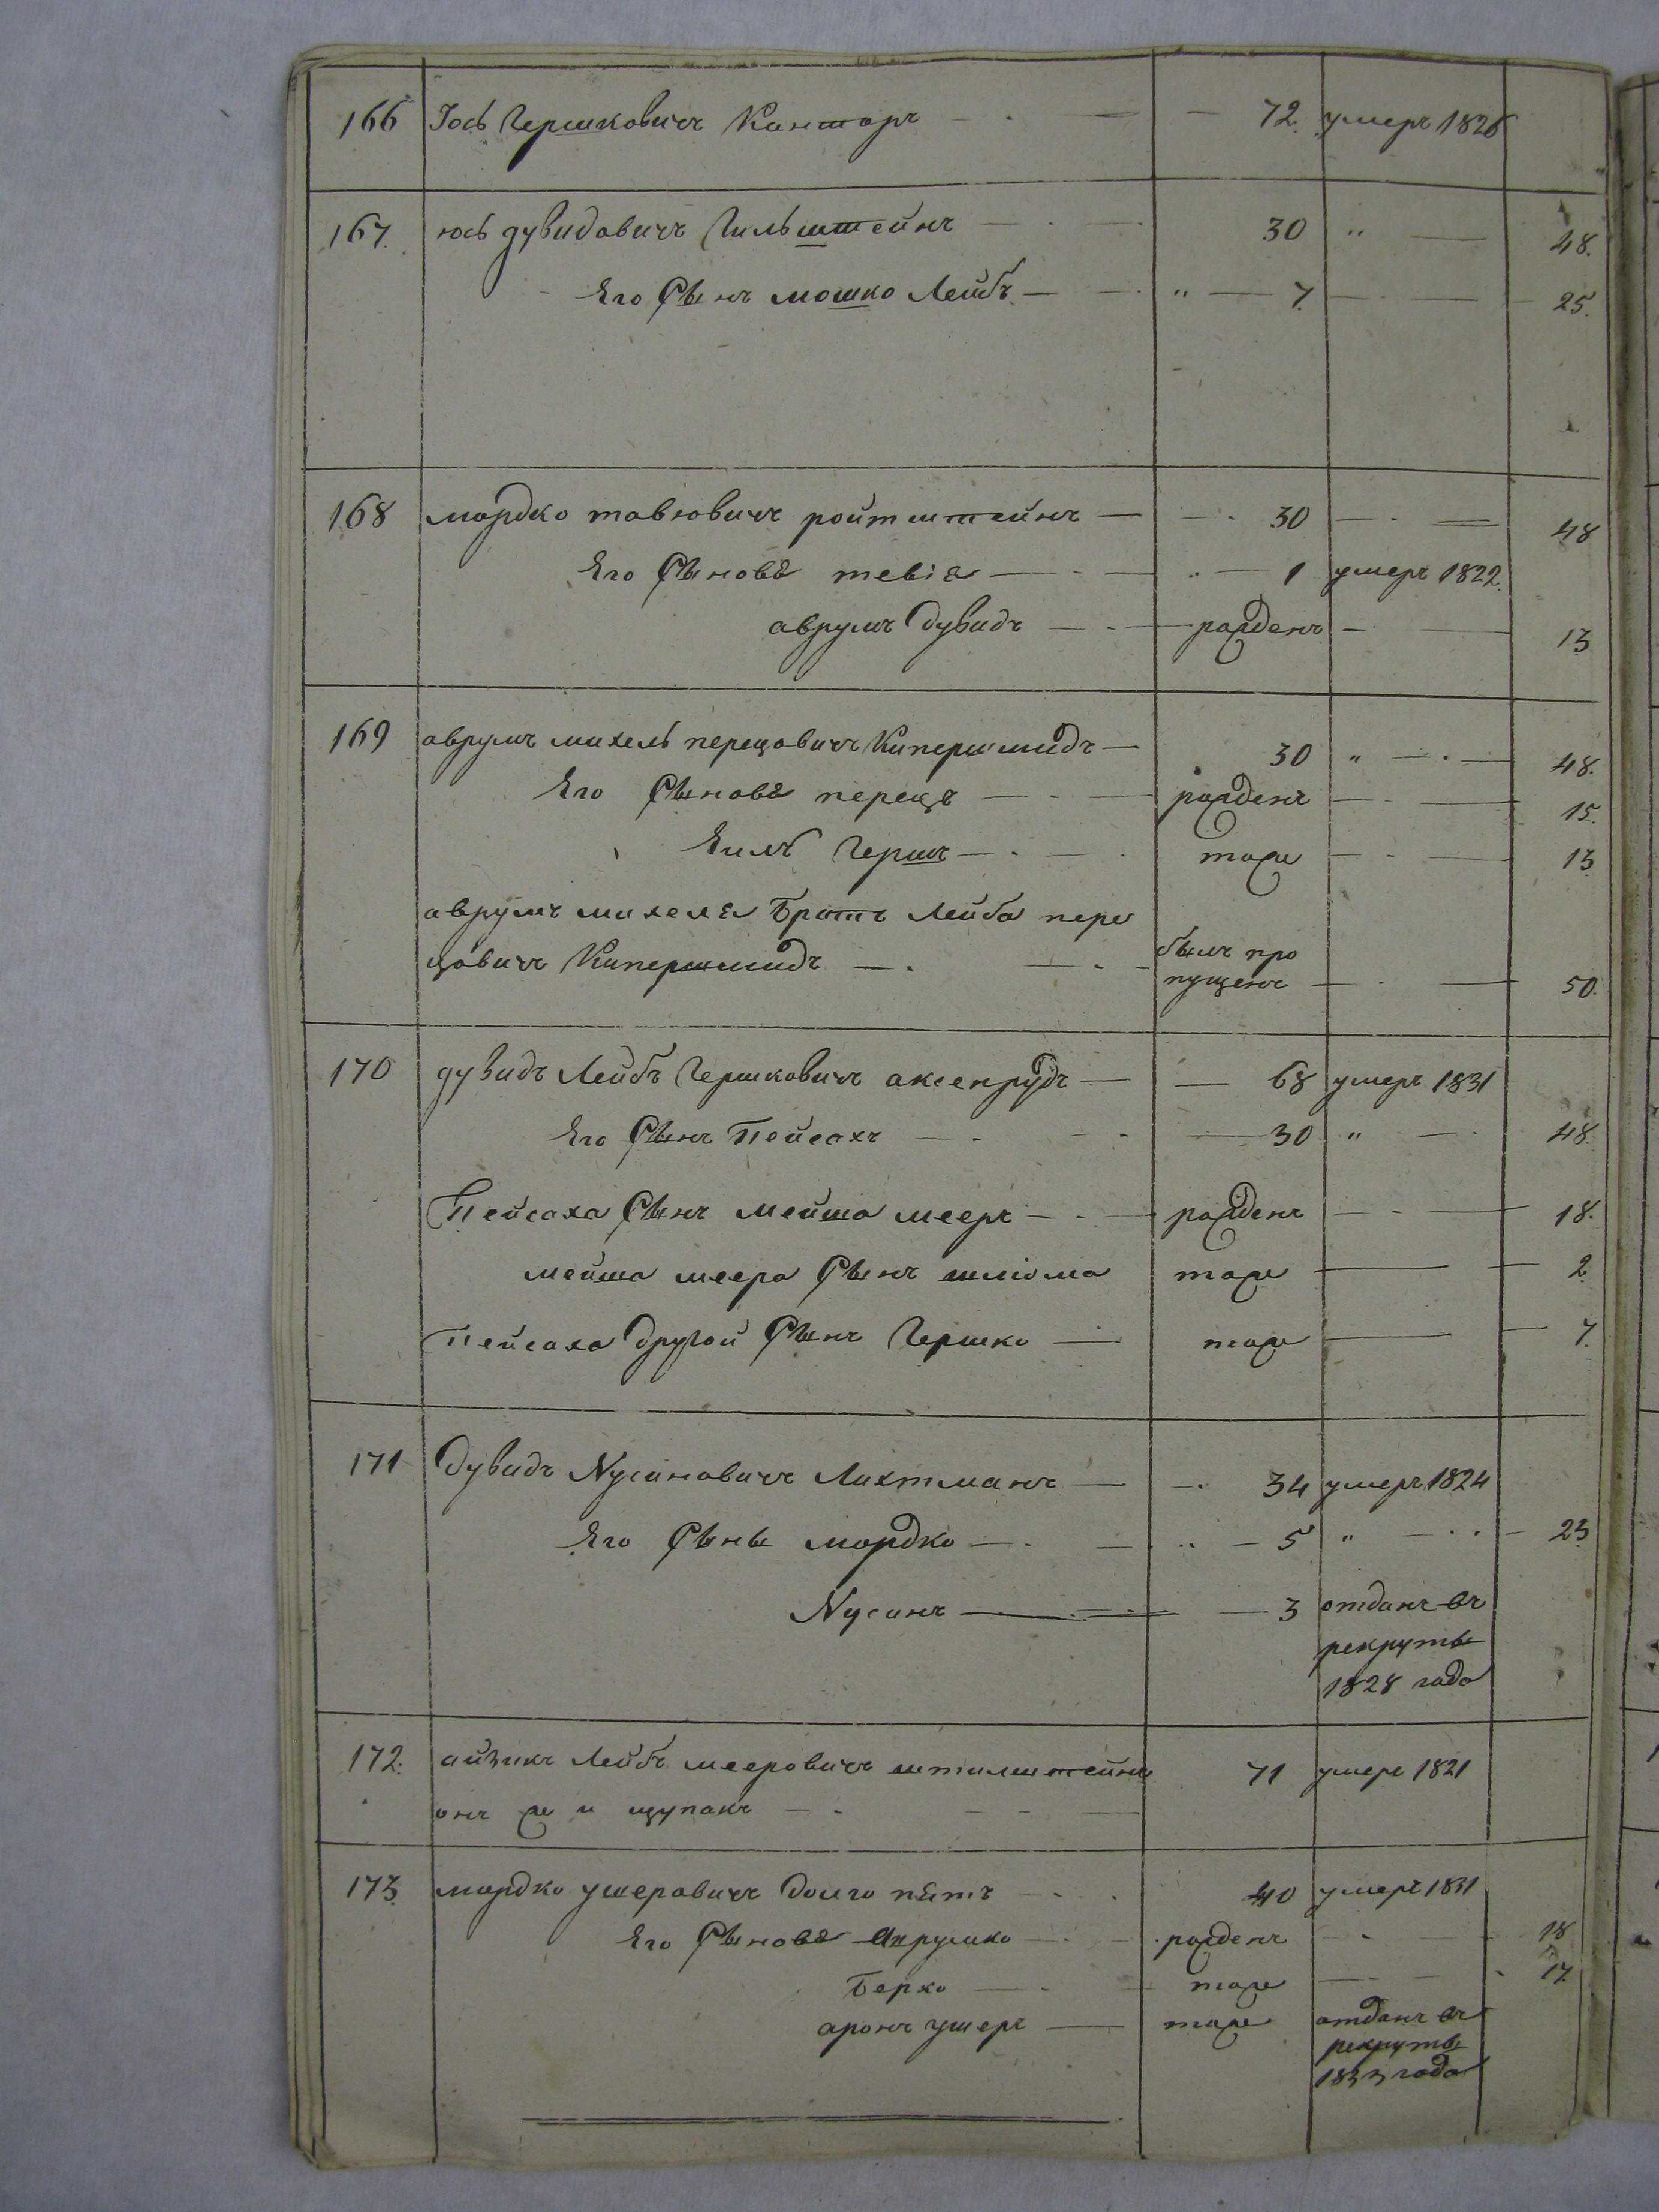 166 Іось Гершковичъ Канторъ — 72. умеръ 1826
167. юсь дувидовичъ Гильштейнъ — 30 " — 48.
Его Сынъ мошко Лейбъ — " — 7. — 25.
168 мордко тавювичъ ройтштейнъ — 30 — 48
Его Сыновя тевія — 1 умеръ 1822.
аврумъ дувидъ — рожденъ — 13
169 аврумъ михель перецовичъ Кипершмидъ — 30 " — 48.
Его Сыновя перецъ — рожденъ — 15.
Гершъ — тоже — 13
аврумъ михеля Братъ Лейба пере
цовичъ Кипершмидъ — былъ про
пущенъ — 50.
170 дувидъ Лейбъ Гершковичъ аксенрудъ — 68 умеръ 1831
Его Сынъ Пейсахъ — 30 " — 48.
Пейсаха Сынъ мейша мееръ — рожденъ — 18.
мейша меера Сынъ шліома тоже — 2
Пейсаха другой Сынъ Гершко — тоже — 7.
171 дувидъ Nусиновичъ Лихтманъ — 34 умеръ 1824
Его Сыны мордко — 5 " — 23
Nусинъ — 3 отданъ въ
рекруты
1828 года
172. айзикъ Лейбъ мееровичъ штилштейнъ 71 умеръ 1821
онъ же и щупакъ —
173 мордко ушеровичъ долго пятъ 40 умеръ 1831
Его Сыновя — рожденъ — 18
Берко — тоже — 17
аронъ ушеръ — тоже отданъ въ
рекруты
1833 года